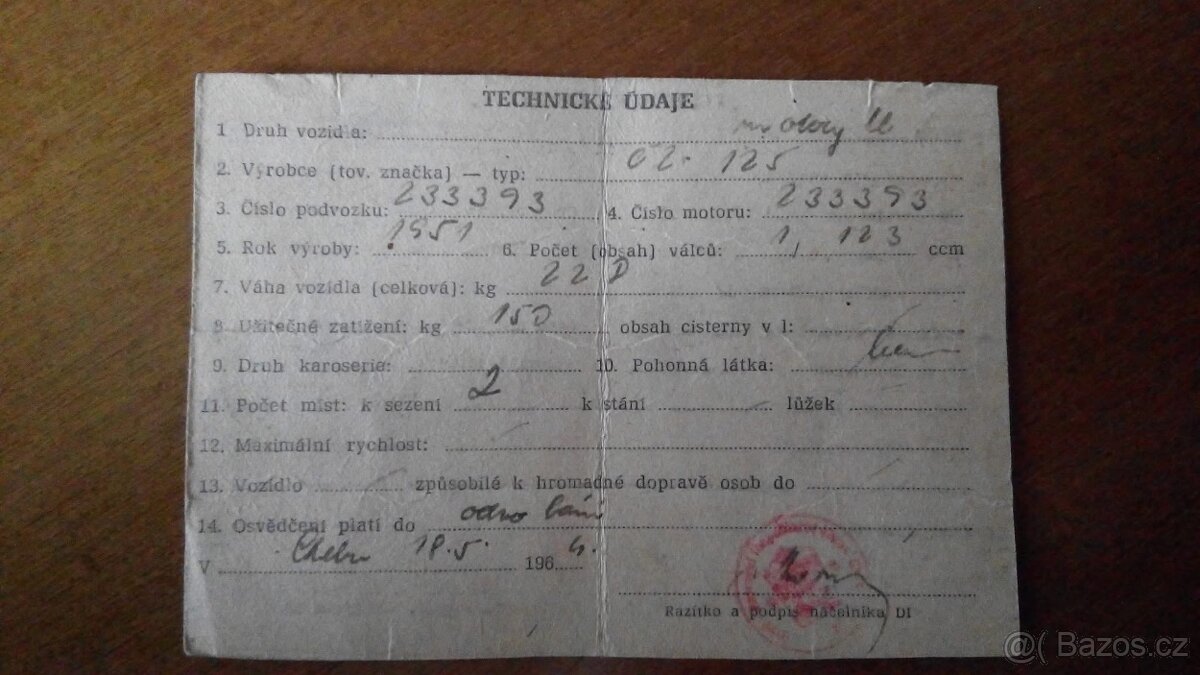 TECHNICKÉ ÚDAJE
1 Druh vozidla: motocykl
2. Výrobce (tov. značka) — typ: ČZ. 125
3. Číslo podvozku: 233393 4. Číslo motoru: 233393
5. Rok výroby: 1951 6. Počet (obsah) válců: 1 / 123 ccm
7. Váha vozidla (celková): kg 220
8. Užitečné zatížení: kg 150 obsah cisterny v l:
9. Druh karoserie: 10. Pohonná látka:
11. Počet míst: k sezení 2 k stání lůžek
12. Maximální rychlost:
13. Vozidlo způsobilé k hromadné dopravě osob do
14. Osvědčení platí do odvolání
V Chebu 18.5. 196
Razítko a podpis náčelníka DI
@( Bazos.cz